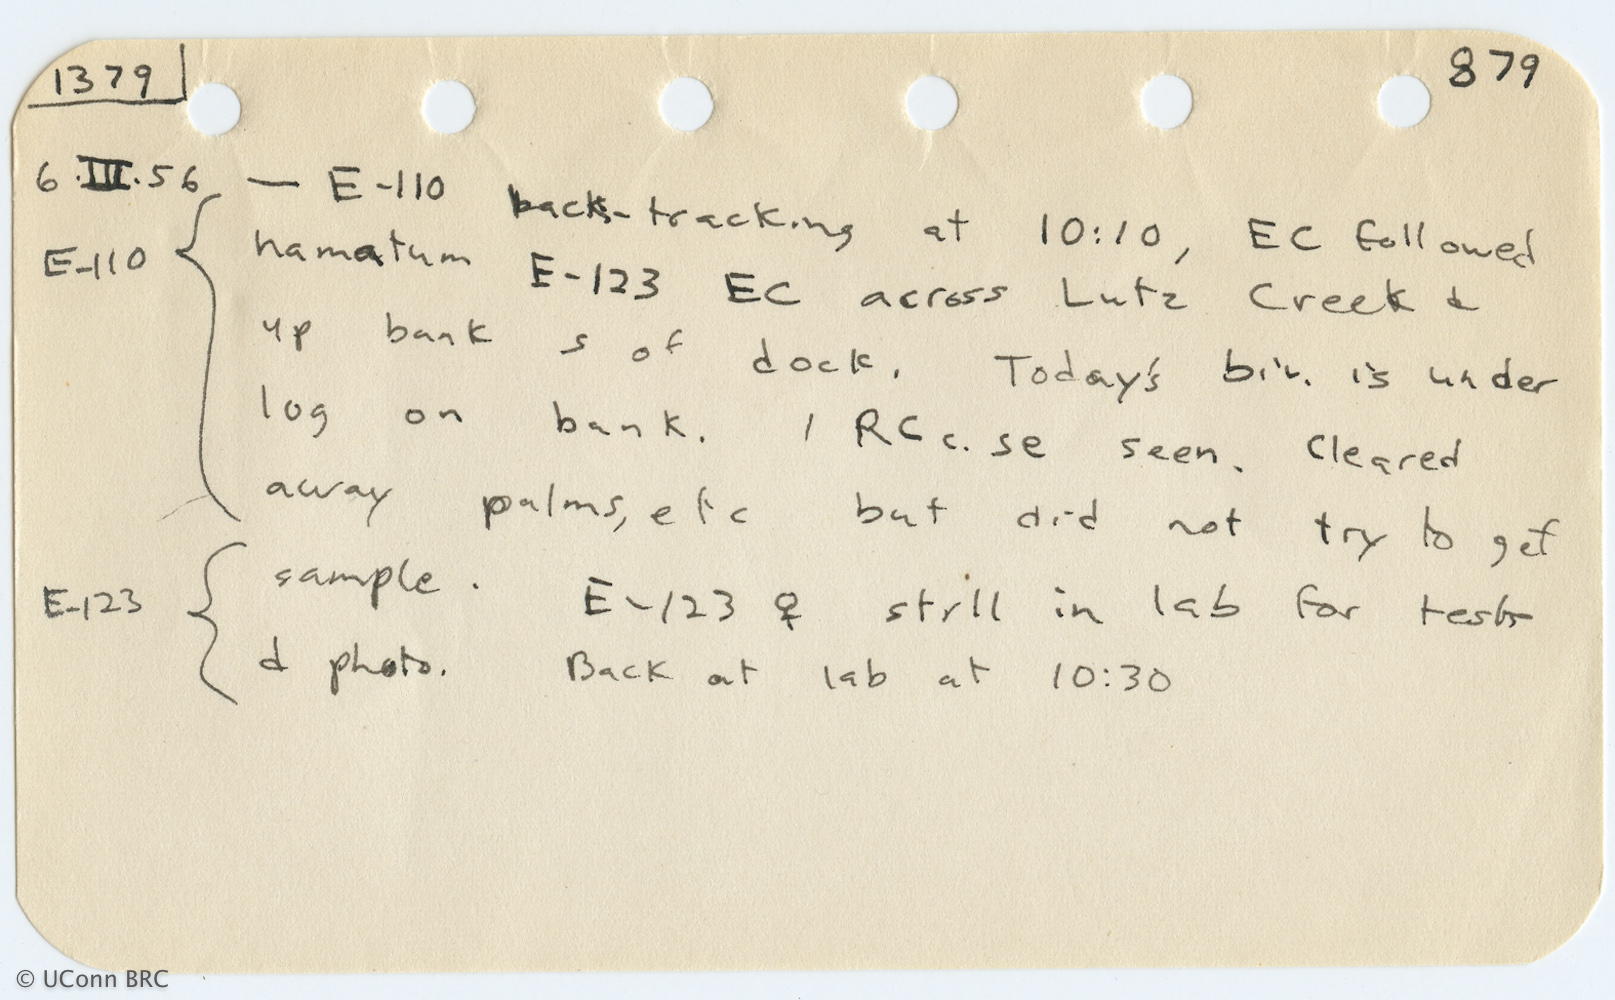 1379
879
6.III.56 — E-110 back-tracking at 10:10, EC followed
E-110
hamatum E-123 EC across Lutz Creek &
up bank s of dock. Today's biv. is under
log on bank. 1 RC c. se seen. Cleared
away palms, etc but did not try to get
E-123
sample. E-123 ♀ still in lab for tests
& photo. Back at lab at 10:30
© UConn BRC